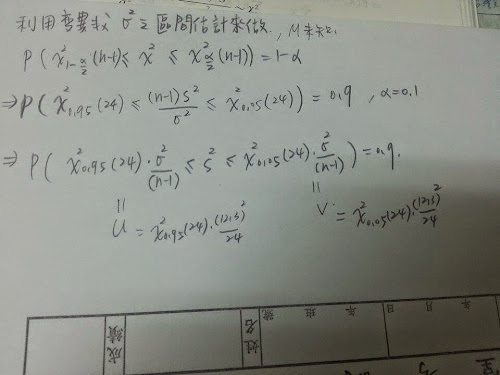 利用變異數 σ² 之區間估計來做, μ未知.
P( χ²_{1-α/2}(n-1) ≤ χ² ≤ χ²_{α/2}(n-1)) = 1-α
⇒ P( χ²_{0.95}(24) ≤ (n-1)S²/σ² ≤ χ²_{0.05}(24)) = 0.9 , α=0.1
⇒ P( χ²_{0.95}(24)·σ²/(n-1) ≤ S² ≤ χ²_{0.05}(24)·σ²/(n-1)) = 0.9.
|| ||
U = χ²_{0.95}(24)·(12.5)²/24 V = χ²_{0.05}(24)·(12.5)²/24
成績 姓名 號 班 年 日 月 年